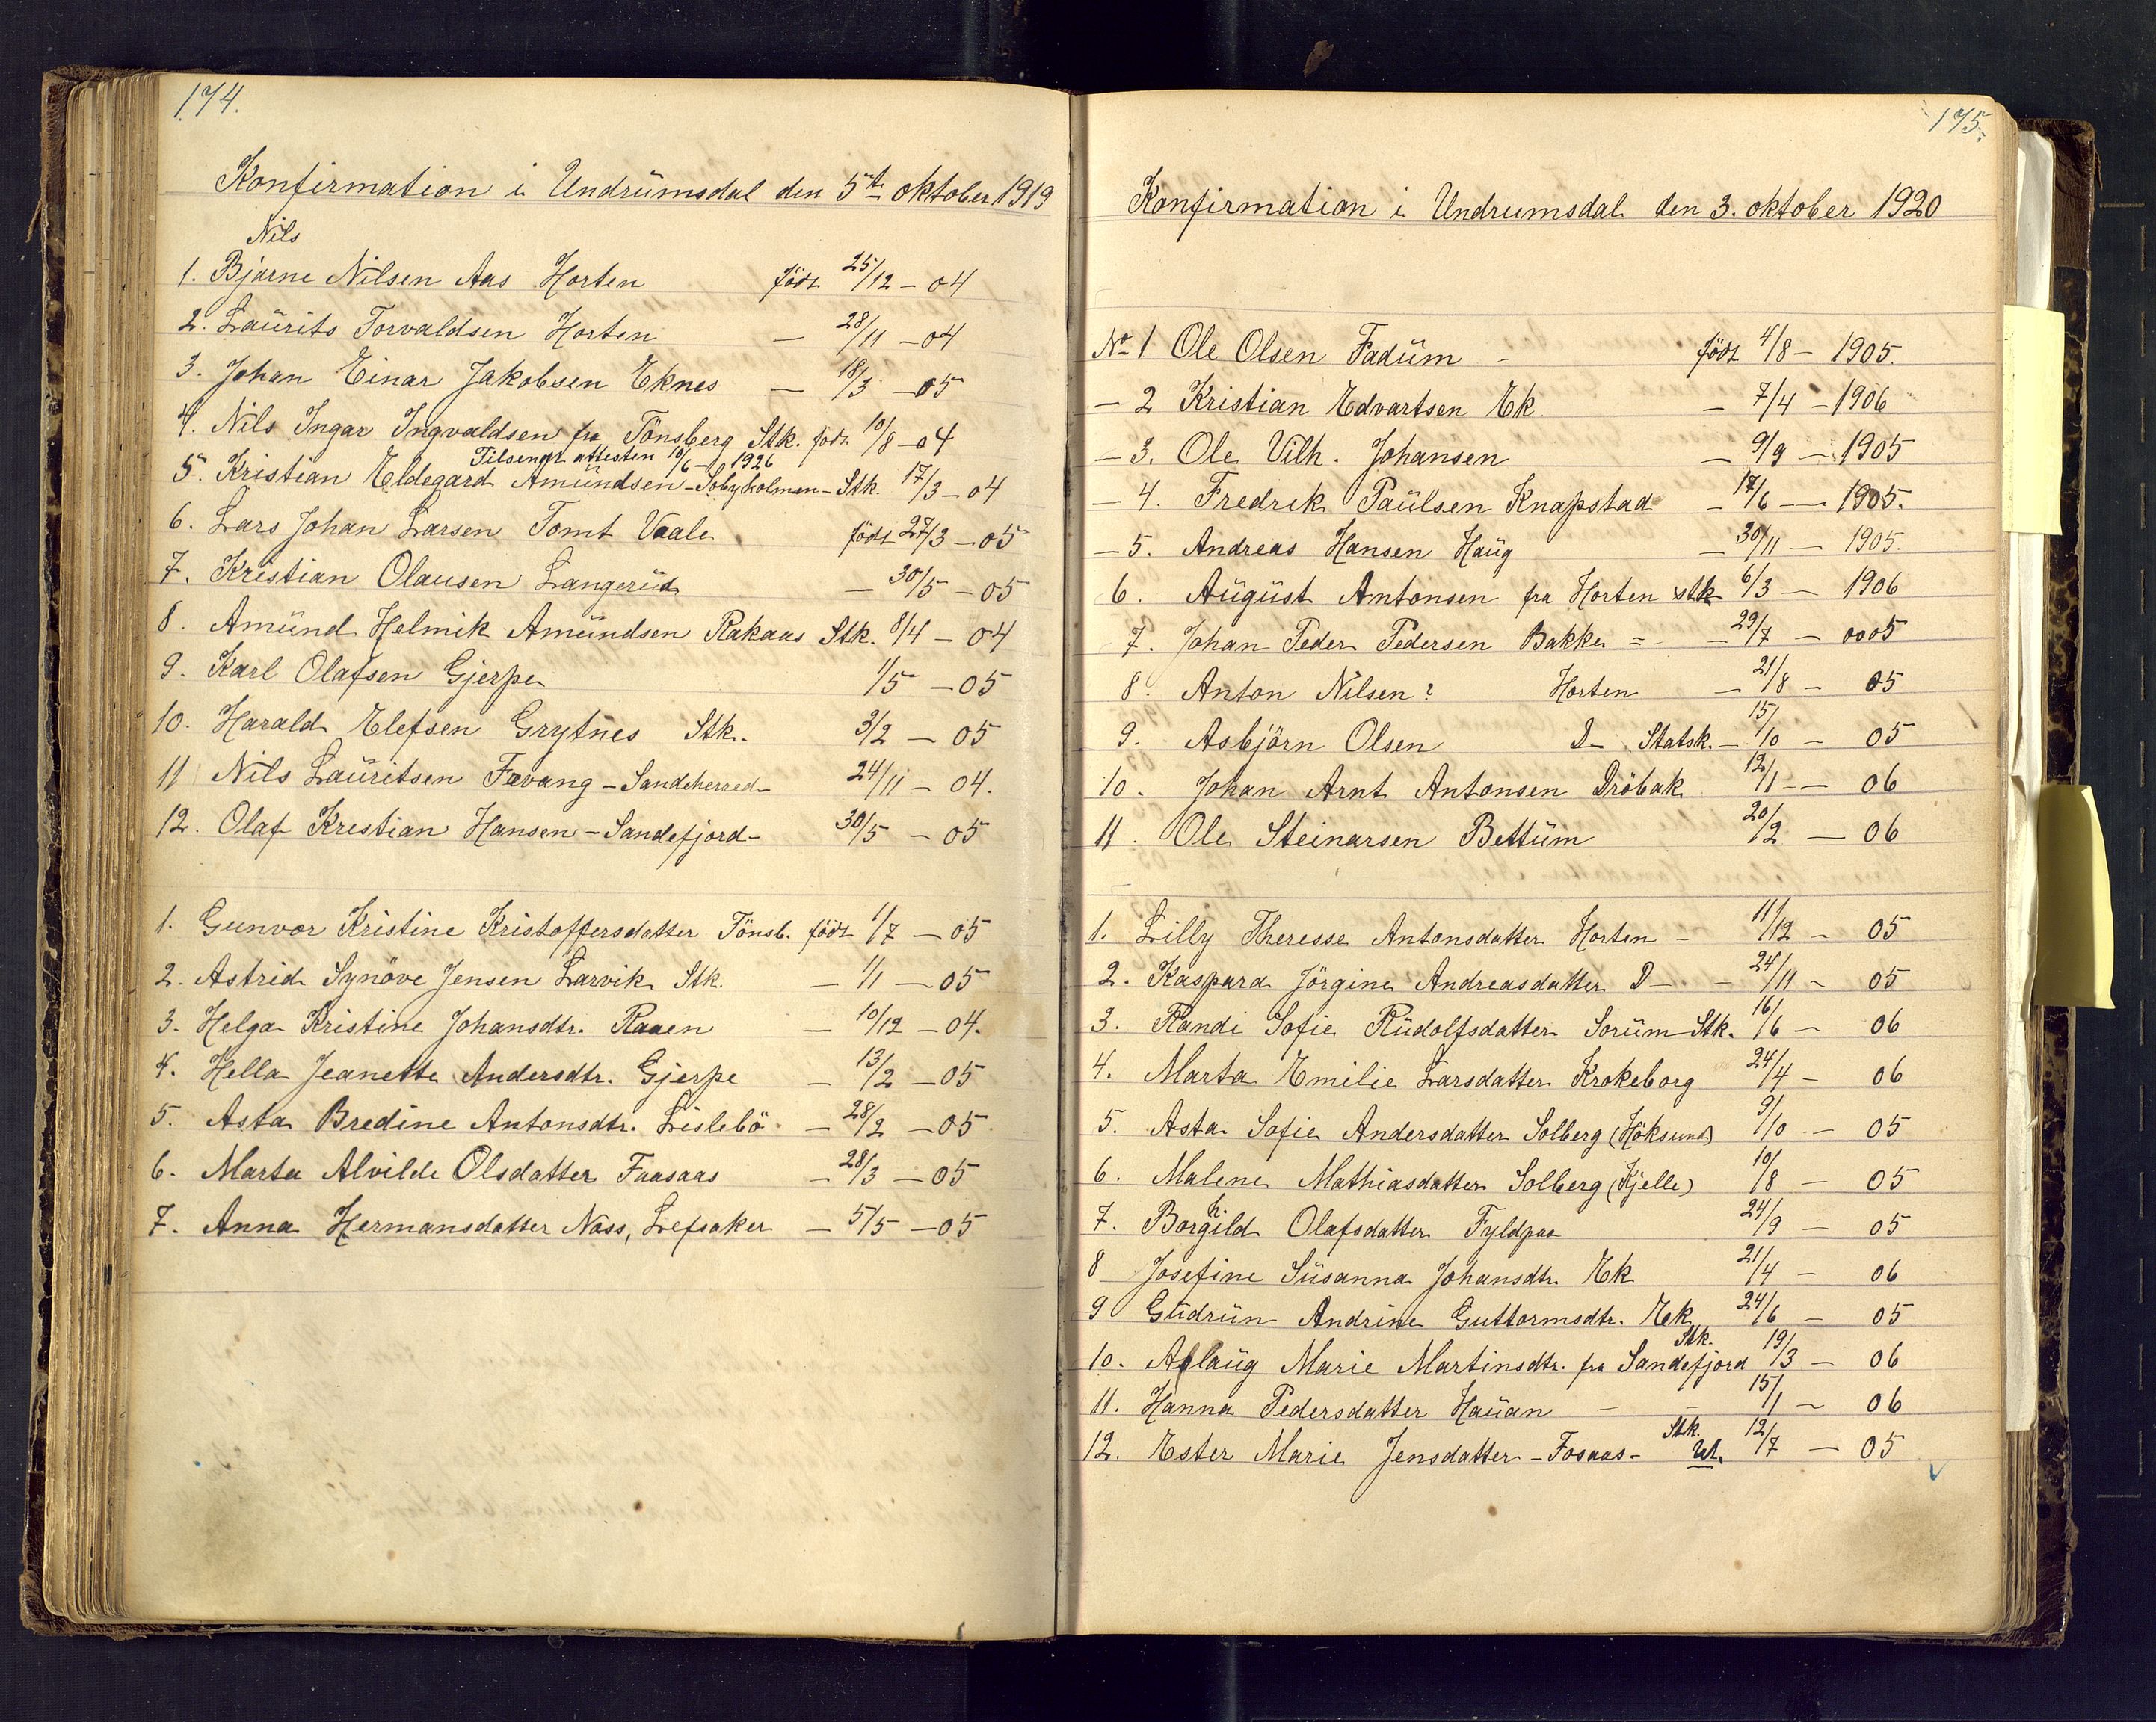 174.
Konfirmation i Undrümsdal den 5te oktober 1919
Nils
1. Bjarne Nilsen Aas Horten födt 25/12 – 04
2. Laürits Torvaldsen Horten — 28/11 – 04
3. Johan Einar Jakobsen Eknes — 18/3 – 05
4. Nils Ingar Ingvaldsen fra Tönsberg Stk. födt 10/8 – 04
Tilsendt attesten 10/6 – 1926
5. Kristian Eldegard Amündsen – Sobyholmen – Stk. 17/3 – 04
6. Lars Johan Larsen Tomt Vaale födt 27/3 – 05
7. Kristian Olausen Langerüd — 30/5 – 05
8. Amünd Helmik Amündsen Rakaas Stk. 8/4 – 04
9. Karl Olafsen Gjerpe 1/5 – 05
10. Harald Elefsen Grytnes Stk. 3/2 – 05
11 Nils Laüritsen Fevang – Sandeherred – 24/11 – 04.
12. Olaf Kristian Hansen – Sandefjord – 30/5 – 05
1. Gunvor Kristine Kristoffersdatter Tönsb. födt 1/7 – 05
2. Astrid Synöve Jensen Larvik Stk. — 1/1 – 05
3. Helga Kristine Johansdtr. Raaen — 10/12 – 04.
4. Hella Jeanette Andersdtr. Gjerpe — 13/2 – 05
5. Asta Bredine Antonsdtr. Lislebö — 28/2 – 05
6. Marta Alvilde Olsdatter Faasaas — 28/3 – 05
7. Anna Hermansdatter Näss, Lefsaker — 5/5 – 05
175.
Konfirmation i Undrumsdal den 3. oktober 1920
No 1 Ole Olsen Fadüm – födt 4/8 – 1905.
– 2 Kristian Edvartsen Ek – 7/4 – 1906
– 3. Ole Vilh. Johansen – 9/9 – 1905
– 4. Fredrik Paülsen Knapstad – 17/6 – 1905.
– 5. Andreas Hansen Haüg – 30/11 – 1905.
6. Aügüst Antonsen fra Horten stk 6/3 – 1906
7. Johan Peder Pedersen Bakke = – 29/7 – 0005
8. Anton Nilsen? Horten – 21/8 – 05
9. Asbjörn Olsen D– Statsk. – 15/10 – 05
10. Johan Arnt Antonsen Dröbak 12/1 – 06
11. Ole Steinarsen Bettüm 20/2 – 06
1. Lilly Theresse Antonsdatter Horten – 11/12 – 05
2. Kaspara Jörgine Andreasdatter D – – 24/11 – 05
3. Randi Sofie Rüdolfsdatter Sorüm Stk. 16/6 – 06
4. Marta Emilie Larsdatter Krokeborg 24/4 – 06
5. Asta Sofie Andersdatter Solberg (Höksund) 9/10 – 05
6. Malene Mathiasdatter Solberg (Kjelle) 10/8 – 05
7. Borghild Olafsdatter Fyldpaa 24/9 – 05
8 Josefine Süsanna Johansdtr. Ek 21/4 – 06
9 Güdrün Andrine Guttormsdtr. Ek 24/6 – 05
10. Aslaüg Marie Martinsdtr. fra Sandefjord Stk. 19/3 – 06
11. Hanna Pedersdatter Haüan – – 15/1 – 06
12. Ester Marie Jensdatter – Fosaas – Stk. Ut. 12/7 – 05